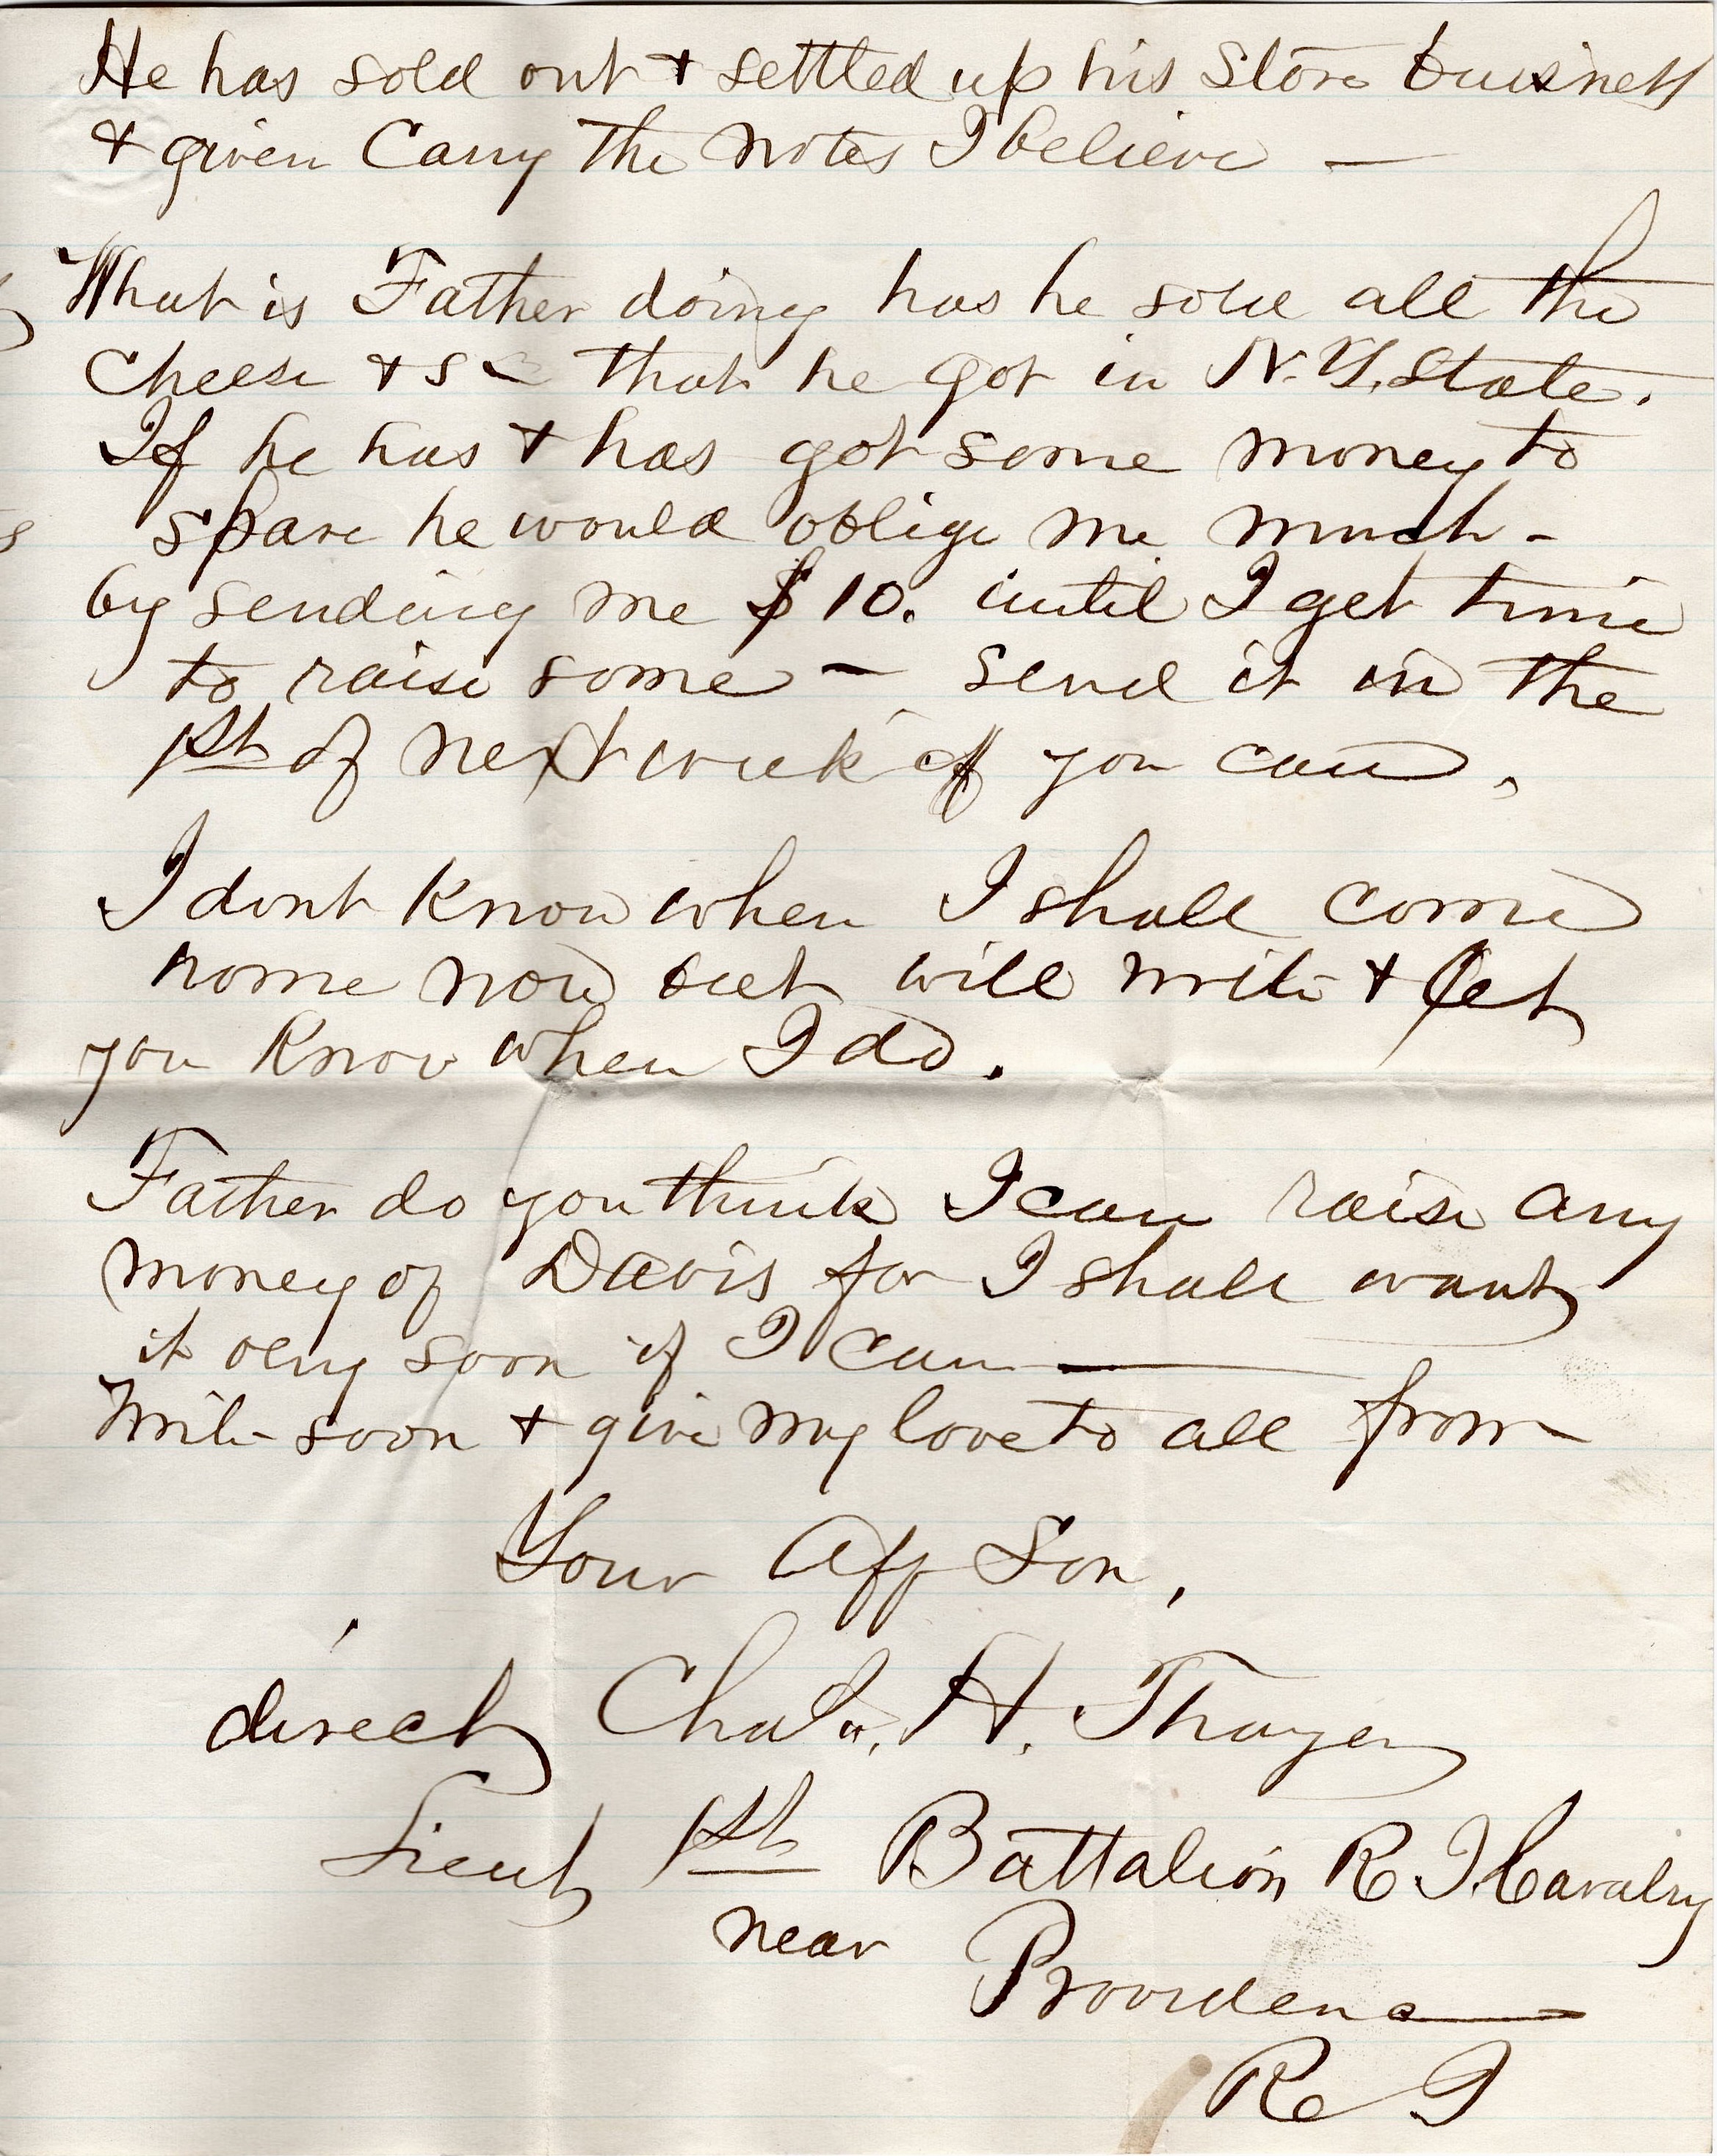 He has sold out & settled up his Store buisness
& given Carry the notes I believe —
What is Father doing has he sold all the
Cheese & sc that he got in N.Y. State.
If he has & has got some money to
spare he would oblige me much -
by sending me $10. until I get time
to raise some — send it in the
1st of next week if you can,
I dont know when I shall come
home now but will write & let
you know when I do.
Father do you think I can raise any
money of Davis for I shall want
it very soon if I can —
Write soon & give my love to all from
Your Aff Son,
direct Chas. H. Thayer
Lieut 1st Battalion R I Cavalry
near
Providence
R I